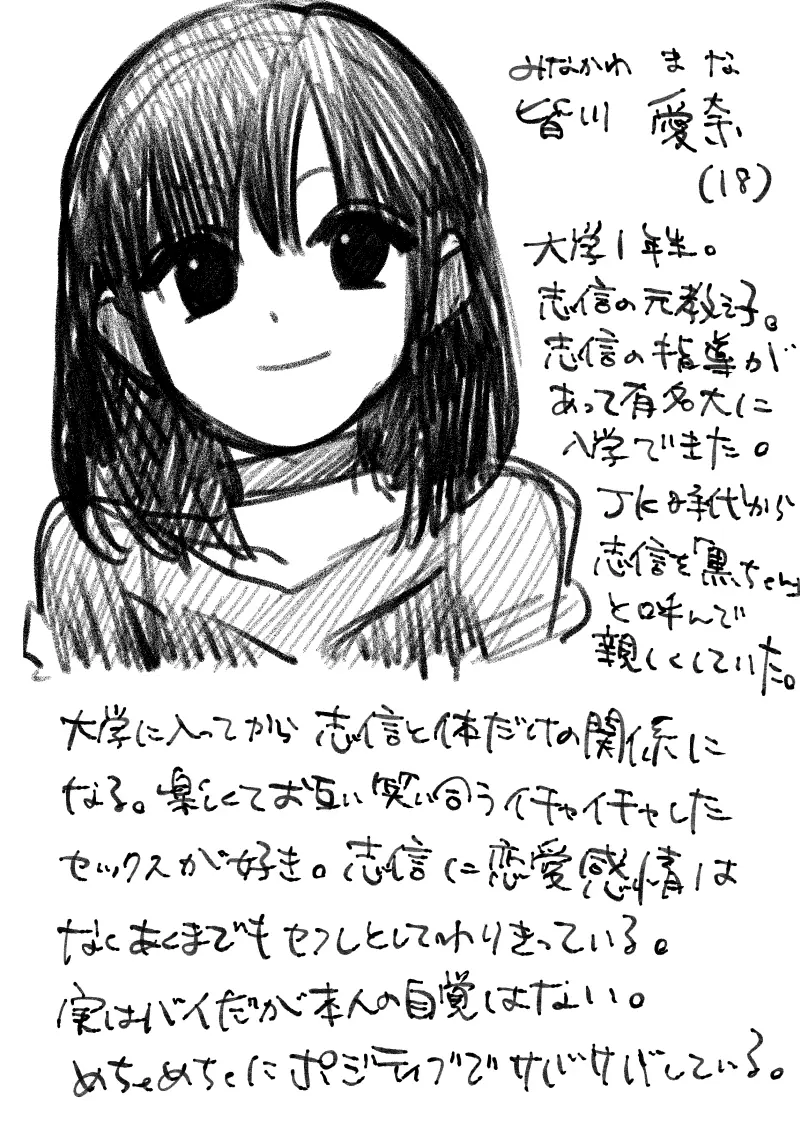 みなかわ まな
皆川 愛奈
(18)
大学1年生。
志信の元教え子。
志信の指導が
あって有名大に
入学できた。
JK時代から
志信を「黒ちゃん」
と呼んで
親しくしていた。
大学に入ってから志信と体だけの関係に
なる。楽しくてお互い笑い合うイチャイチャした
セックスが好き。志信に恋愛感情は
なくあくまでもセフレとしてわりきっている。
実はバイだが本人の自覚はない。
めちゃめちゃにポジティブでサバサバしている。